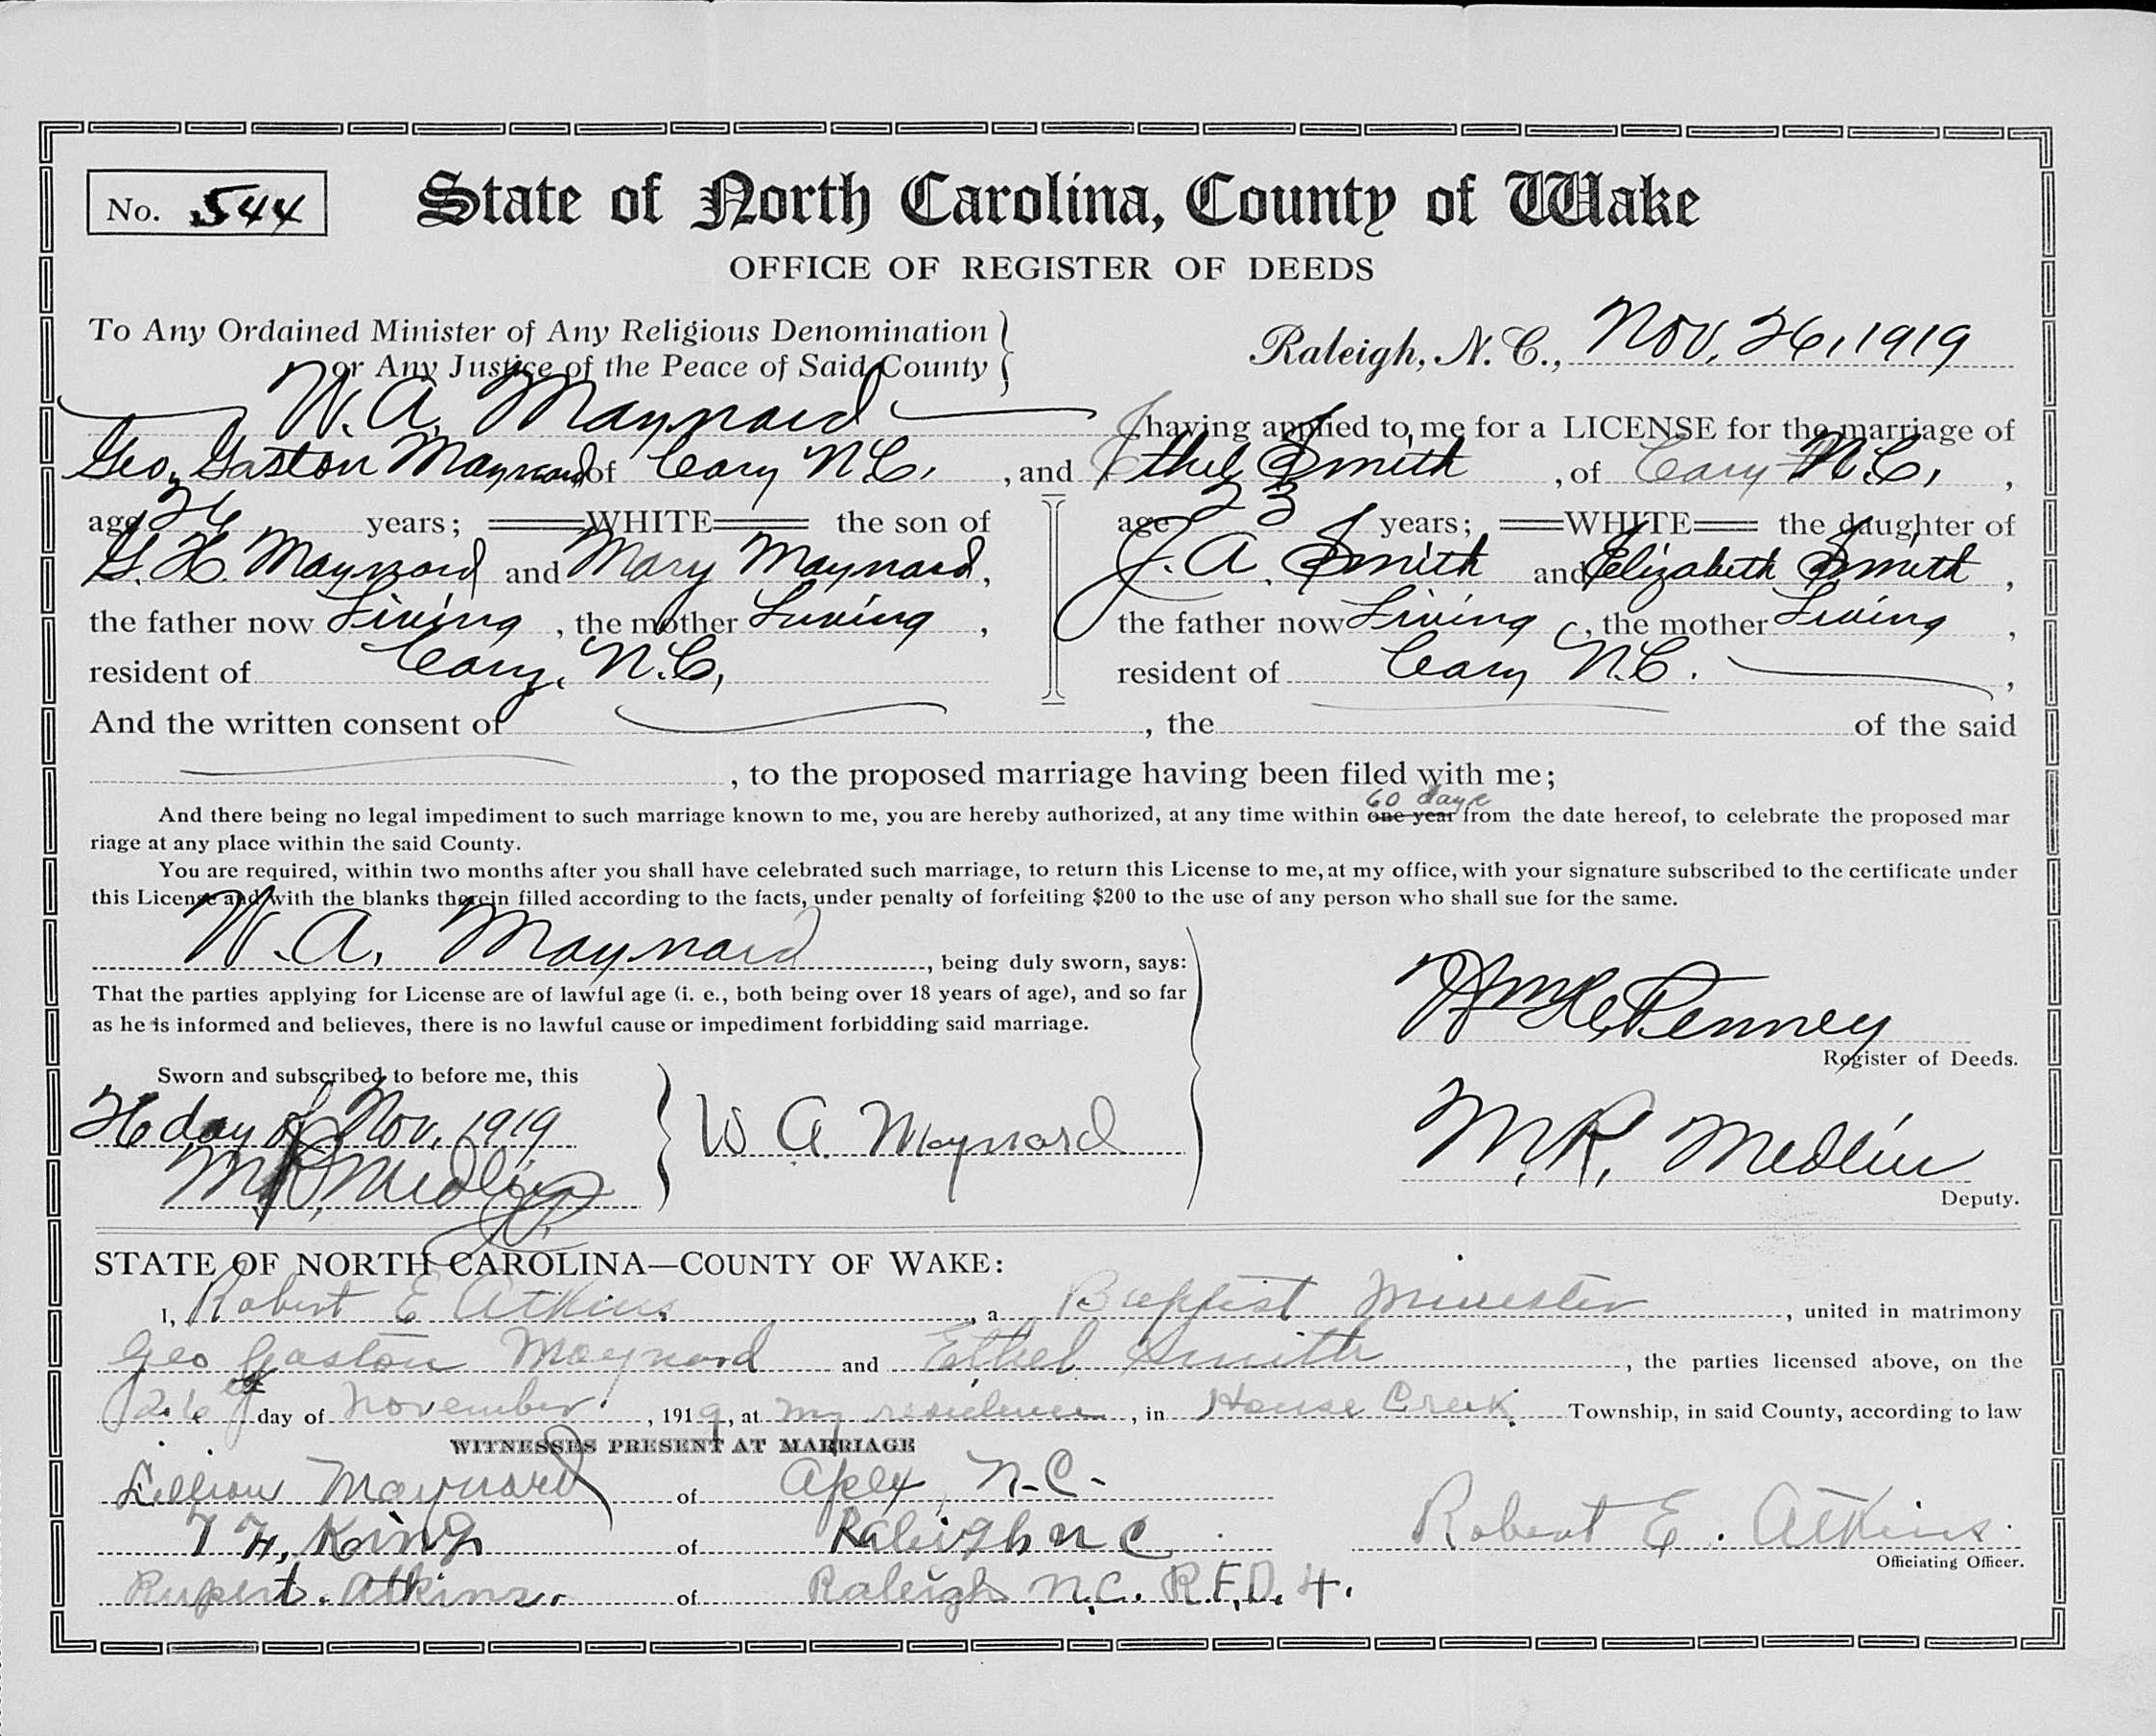 No. 544
State of North Carolina, County of Wake
OFFICE OF REGISTER OF DEEDS
To Any Ordained Minister of Any Religious Denomination
or Any Justice of the Peace of Said County
Raleigh, N. C., Nov, 26, 1919
W. A. Maynard having applied to me for a LICENSE for the marriage of
Geo, Gaston Maynard of Cary N.C. , and Ethel Smith , of Cary N.C. ,
age 26 years; WHITE the son of
G. H. Maynard and Mary Maynard,
the father now Living , the mother Living ,
resident of Cary, N.C,
age 23 years; WHITE the daughter of
J. A. Smith and Elizabeth Smith ,
the father now Living , the mother Living ,
resident of Cary N.C. ,
And the written consent of , the of the said
, to the proposed marriage having been filed with me;
60 days
And there being no legal impediment to such marriage known to me, you are hereby authorized, at any time within one year from the date hereof, to celebrate the proposed mar
riage at any place within the said County.
You are required, within two months after you shall have celebrated such marriage, to return this License to me, at my office, with your signature subscribed to the certificate under
this License and with the blanks therein filled according to the facts, under penalty of forfeiting $200 to the use of any person who shall sue for the same.
W. A. Maynard , being duly sworn, says:
That the parties applying for License are of lawful age (i. e., both being over 18 years of age), and so far
as he is informed and believes, there is no lawful cause or impediment forbidding said marriage.
Sworn and subscribed to before me, this
26 day of Nov, 1919
M.R. Medlin
W A. Maynard
Penney
Register of Deeds.
M.R. Medlin
Deputy.
STATE OF NORTH CAROLINA—COUNTY OF WAKE:
I, Robert E Atkins , a Baptist Minister , united in matrimony
Geo Gaston Maynard and Ethel Smith , the parties licensed above, on the
26 day of November , 1919, at my residence , in House Creek Township, in said County, according to law
WITNESSES PRESENT AT MARRIAGE
Lillian Maynard of Apex, N.C.
T H. King of Raleigh N C
Rupert Atkins of Raleigh N.C. R.F.D. 4.
Robert E. Atkins.
Officiating Officer.